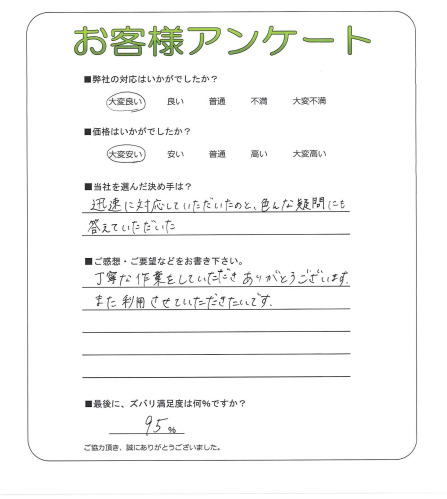 お客様アンケート
■弊社の対応はいかがでしたか？
大変良い 良い 普通 不満 大変不満
■価格はいかがでしたか？
大変安い 安い 普通 高い 大変高い
■当社を選んだ決め手は？
迅速に対応していただいたのと、色んな疑問にも
答えていただいた
■ご感想・ご要望などをお書き下さい。
丁寧な作業をしていただきありがとうございます.
また利用させていただきたいです.
■最後に、ズバリ満足度は何％ですか？
95％
ご協力頂き、誠にありがとうございました。